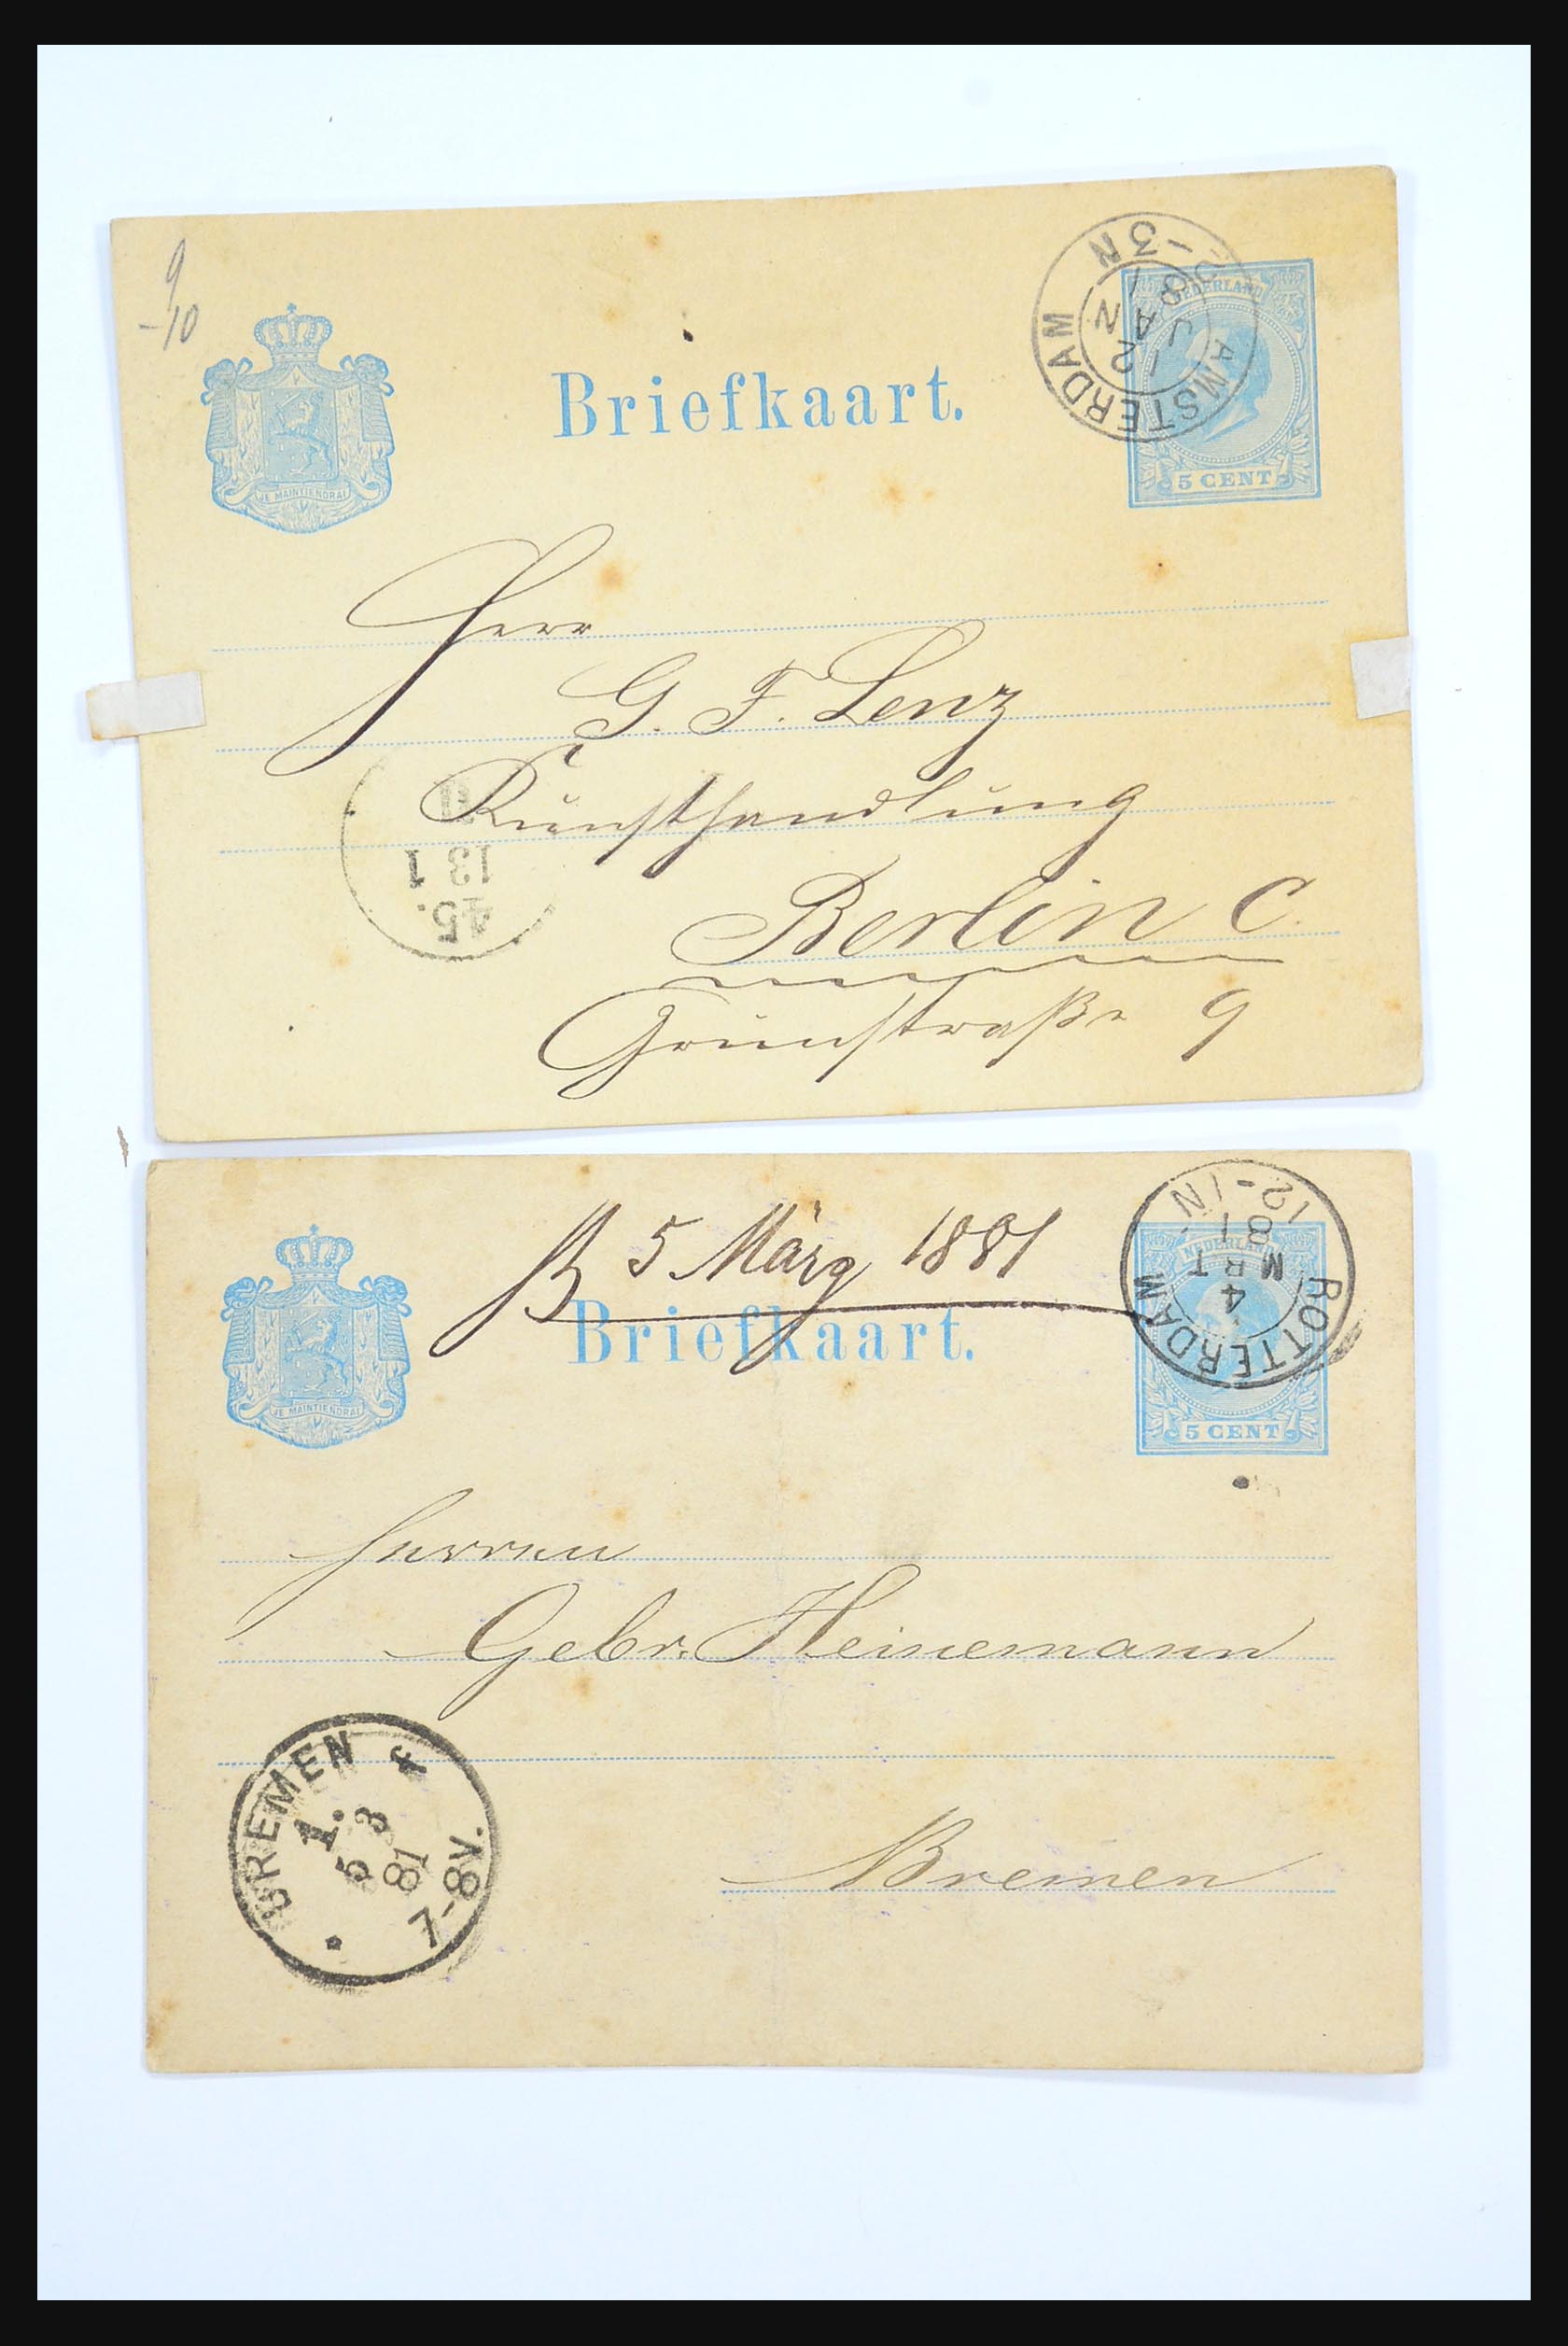 9
-10
Briefkaart.
AMSTERDAM
12 JAN
81
-3N
NEDERLAND
5 CENT
JE MAINTIENDRAI
Herr
G. F. Lenz
Kunsthandlung
Berlin C.
Grünstraße 9
13 1
45.
5 März 1881
Briefkaart.
ROTTERDAM
4 MRT
81
12-1N
NEDERLAND
5 CENT
JE MAINTIENDRAI
Herren
Gebr. Heinemann
Bremen
BREMEN
1.
5 3
81
7-8V.